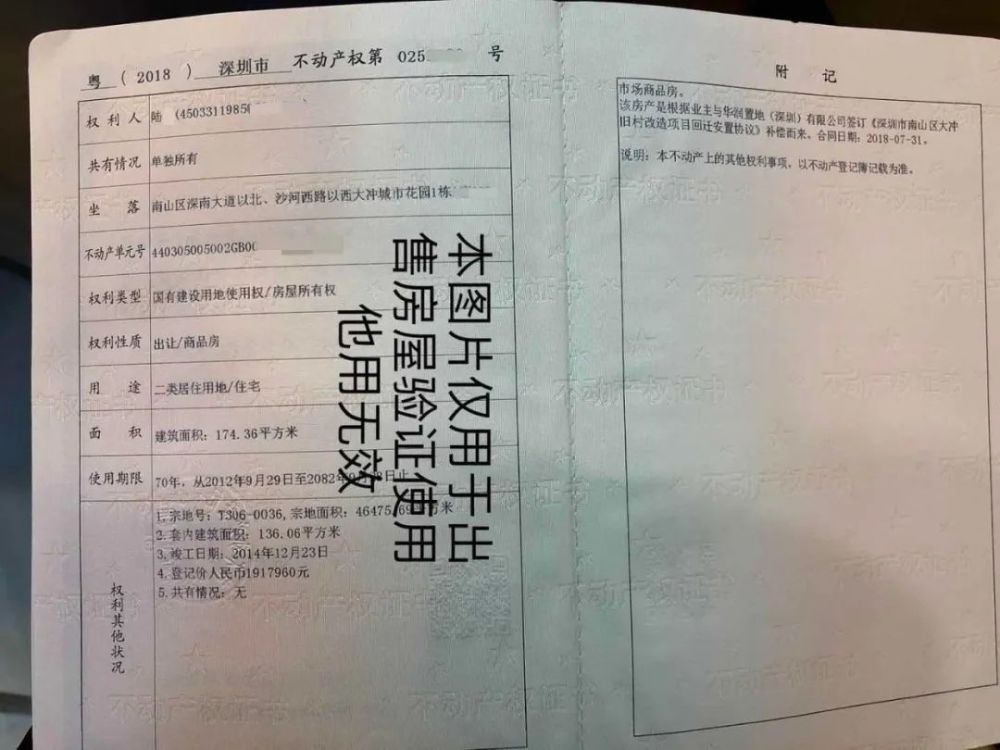 粤 ( 2018 ) 深圳市 不动产权第 025 号
权利人 陆 (4503311985
共有情况 单独所有
坐落 南山区深南大道以北、沙河西路以西大冲城市花园1栋
不动产单元号 440305005002GB00
权利类型 国有建设用地使用权/房屋所有权
权利性质 出让/商品房
用途 二类居住用地/住宅
面积 建筑面积：174.36平方米
使用期限 70年，从2012年9月29日至2082年9月 日止
权利其他状况
1.宗地号：T306-0036,宗地面积：46475.69平方米
2.套内建筑面积：136.06平方米
3.竣工日期：2014年12月23日
4.登记价人民币1917960元
5.共有情况：无
本图片仅用于出
售房屋验证使用
他用无效
附记
市场商品房。
该房产是根据业主与华润置地（深圳）有限公司签订《深圳市南山区大冲
旧村改造项目回迁安置协议》补偿而来，合同日期：2018-07-31。
说明：本不动产上的其他权利事项，以不动产登记簿记载为准。